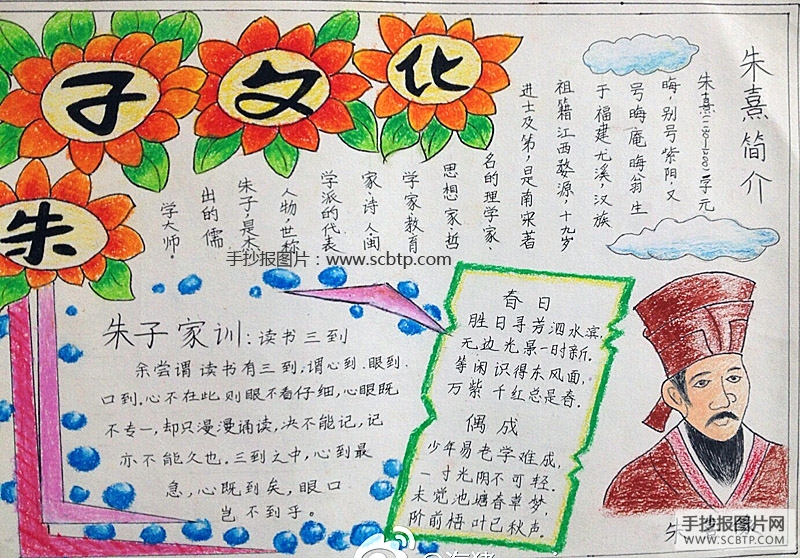 朱子文化
朱熹简介
朱熹(1130-1200)字元
晦，别号紫阳，又
号晦庵晦翁生
于福建尤溪，汉族
祖籍江西婺源，十九岁
进士及第，是南宋著
名的理学家、
思想家、哲
学家教育
家、诗人闽
学派的代表
人物，世称
朱子，是杰
出的儒
学大师。
手抄报图片：www.scbtp.com
朱子家训：读书三到
余尝谓读书有三到，谓心到、眼到、
口到。心不在此则眼不看仔细，心眼既
不专一，却只漫漫诵读，决不能记，记
亦不能久也。三到之中，心到最
急，心既到矣，眼口
岂不到乎。
春日
胜日寻芳泗水滨，
无边光景一时新。
等闲识得东风面，
万紫千红总是春。
偶成
少年易老学难成，
一寸光阴不可轻。
未觉池塘春草梦，
阶前梧叶已秋声。
朱
手抄报图片网
WWW.SCBTP.COM